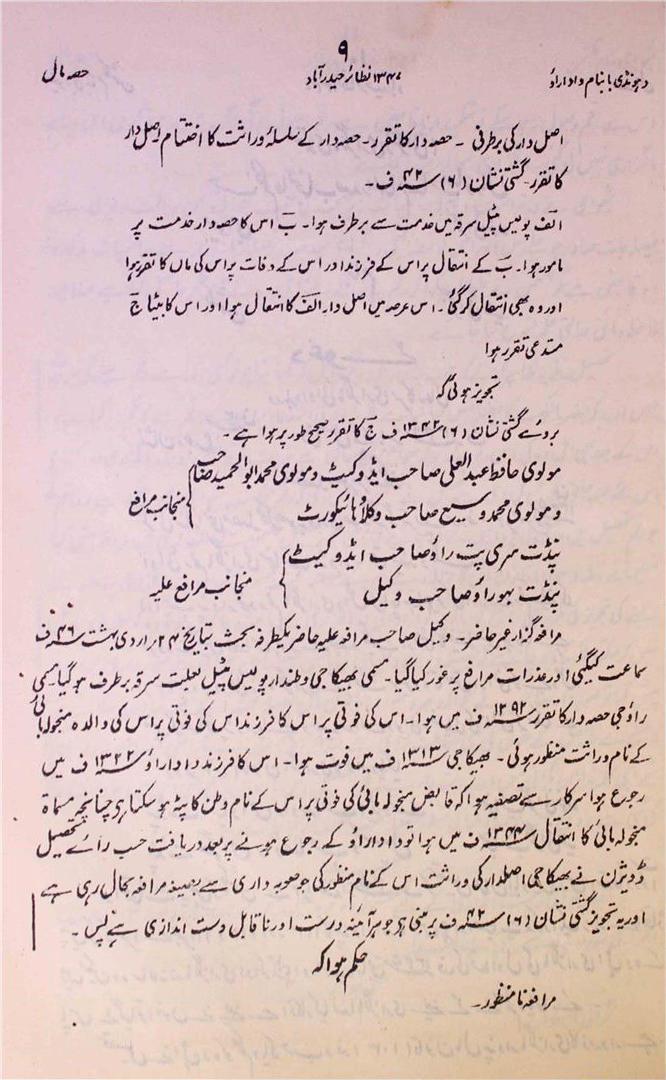 ۹
دہونڈی بابنام داداراؤ
۱۳۴۷ نظائر حیدرآباد
حصہ مال
اصل دار کی برطرفی ۔ حصہ دار کا تقرر ۔ حصہ دار کے سلسلۂ وراثت کا اختتام ۔ اصل دار
کا تقرر ۔ گشتی نشان (۶) سنہ ۴۲ ف ۔
الف پولیس پٹیل سرقہ میں خدمت سے برطرف ہوا ۔ ب اس کا حصہ دار خدمت پر
مامور ہوا ۔ ب کے انتقال پر اس کے فرزند اور اس کے وفات پر اس کی ماں کا تقرر ہوا
اور وہ بھی انتقال کرگئی ۔ اس عرصہ میں اصل دار ۔ الف کا انتقال ہوا اور اس کا بیٹا ج
مستدعی تقرر ہوا
تجویز ہوئی کہ
بروئے گشتی نشان (۶) سنہ ۱۳۴۲ ف ج کا تقرر صحیح طور پر ہوا ہے ۔
مولوی حافظ عبدالعلی صاحب ایڈوکیٹ و مولوی محمد ابوالحمید صاحب
و مولوی محمد وسیع صاحب وکلاؤ ہائیکورٹ } منجانب مرافع
پنڈت سری پت راؤ صاحب ایڈوکیٹ
پنڈت بہوراؤ صاحب وکیل } منجانب مرافع علیہ
مرافعہ گزار غیر حاضر ۔ وکیل صاحب مرافعہ علیہ حاضر یکطرفہ بحث بتاریخ ۲۴؍ اردی بہشت سنہ ۴۶ ف
سماعت کیگئی اور عذرات مرافع پر غور کیا گیا ۔ مسمی بھیکاجی وطندار پولیس پٹیل بعلت سرقہ برطرف ہوگیا ۔ مسمی
راؤجی حصہ دار کا تقرر سنہ ۱۲۹۲ ف میں ہوا ۔ اس کی فوتی پر اس کا فرزند اس کی فوتی پر اس کی والدہ منجولہ بائی
کے نام وراثت منظور ہوئی ۔ بھیکاجی سنہ ۱۳۱۳ ف میں فوت ہوا ۔ اس کا فرزند داداراؤ سنہ ۱۳۲۲ ف میں
رجوع ہوا سرکار سے تصفیہ ہوا کہ قابض منجولہ بائی کی فوتی پر اس کے نام وطن کا پٹہ ہوسکتا ہی چنانچہ مسماۃ
منجولہ بائی کا انتقال سنہ ۱۳۴۴ ف میں ہوا تو داداراؤ کے رجوع ہونے پر بعد دریافت حسب رائے تحصیل
ڈویژن نے بھیکاجی اصلدار کی وراثت اس کے نام منظور کی جو صوبہ داری سے بصیغہ مرافعہ بحال رہی ہے
اور یہ تجویز گشتی نشان (۶) سنہ ۴۲ ف پر مبنی ہی جو ہر آئینہ درست اور ناقابل دست اندازی ہے پس ۔
حکم ہوا کہ
مرافعہ نامنظور ۔